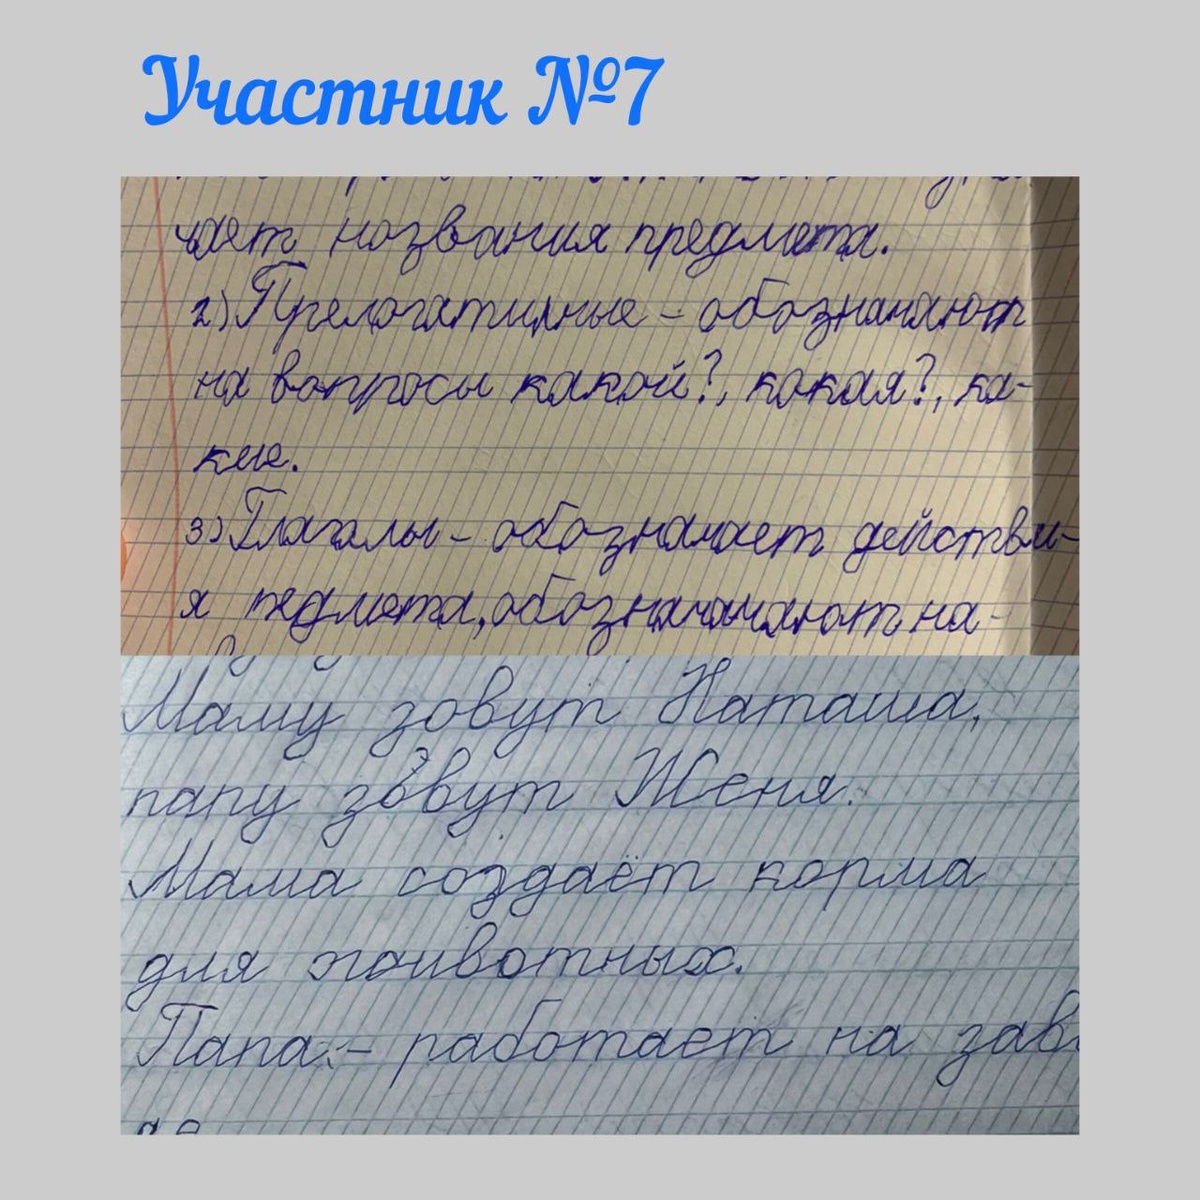 Участник №7
чает нозвания предмета.
2) Прелогатилные - обозначают
на вопросы какой?, кокая?, ка-
кие.
3) Глагалы - обозначает действи-
я педмета, обозначачают на-
Маму зовут Наташа,
папу зовут Женя.
Мама создаёт корма
для животных.
Папа - работает на зав